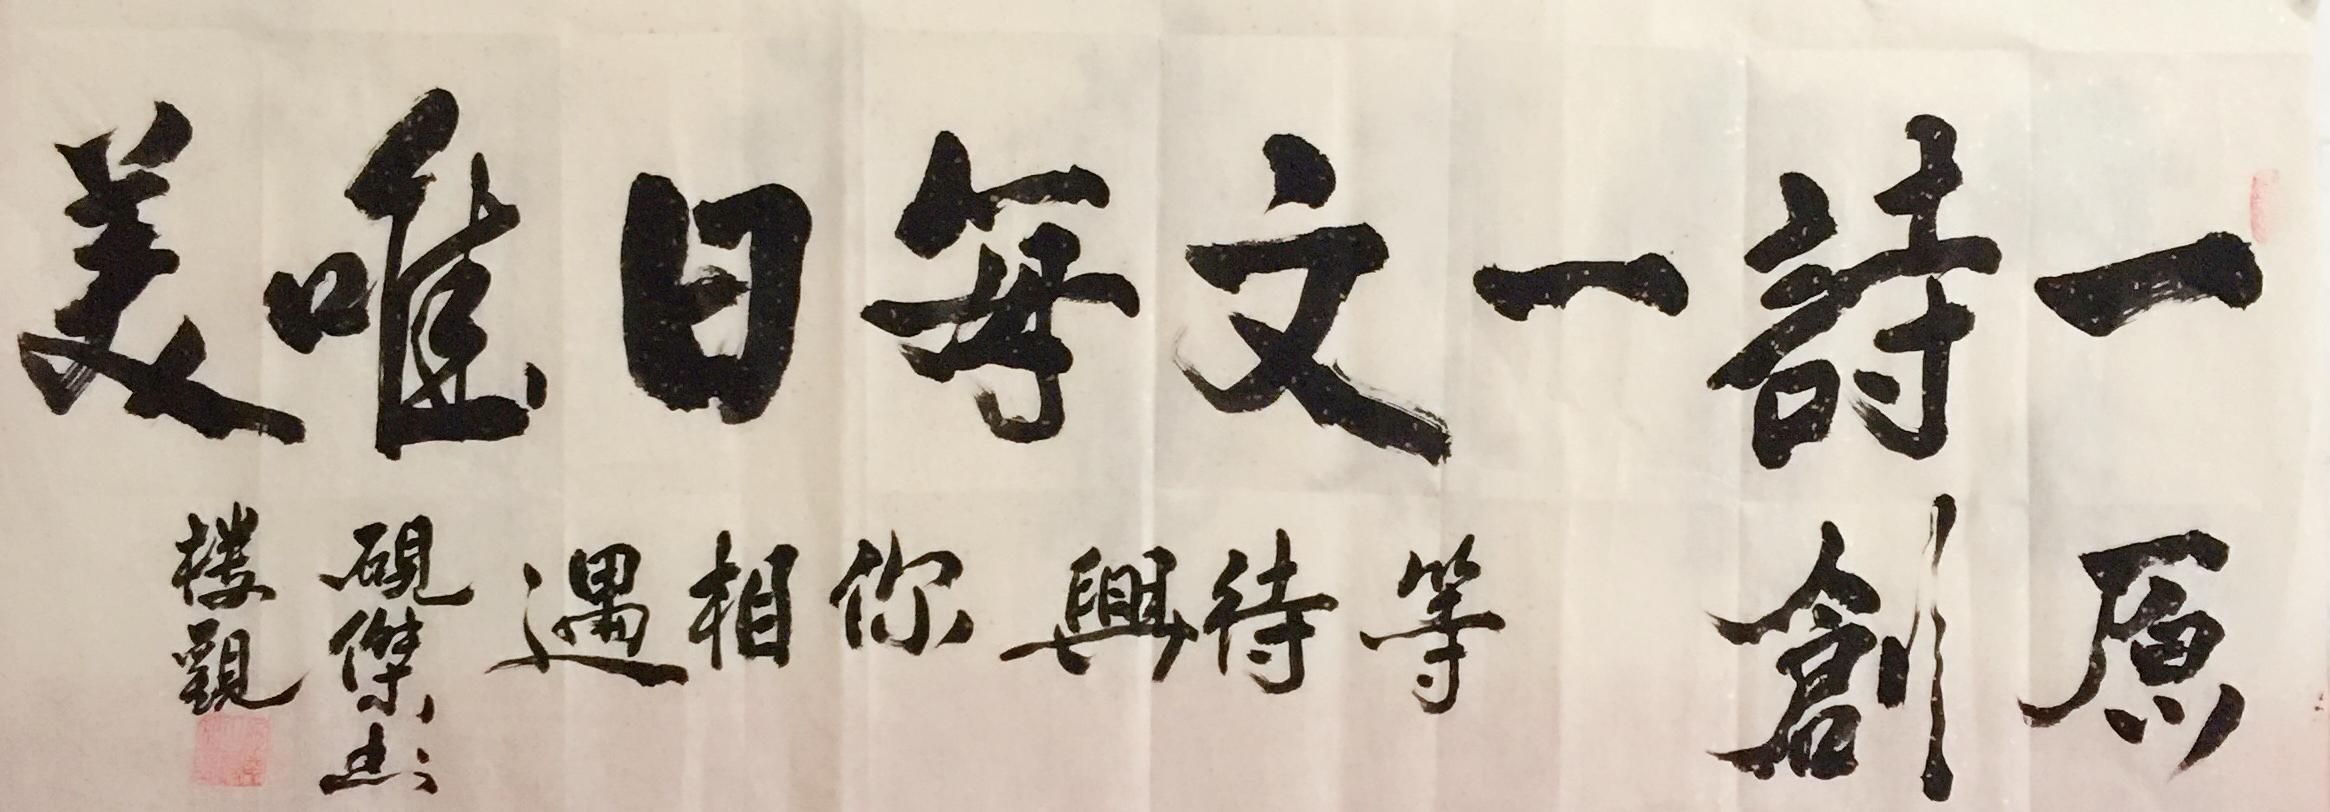 一詩一文每日唯美
原創
等待與你相遇
硯傑书
楼觀